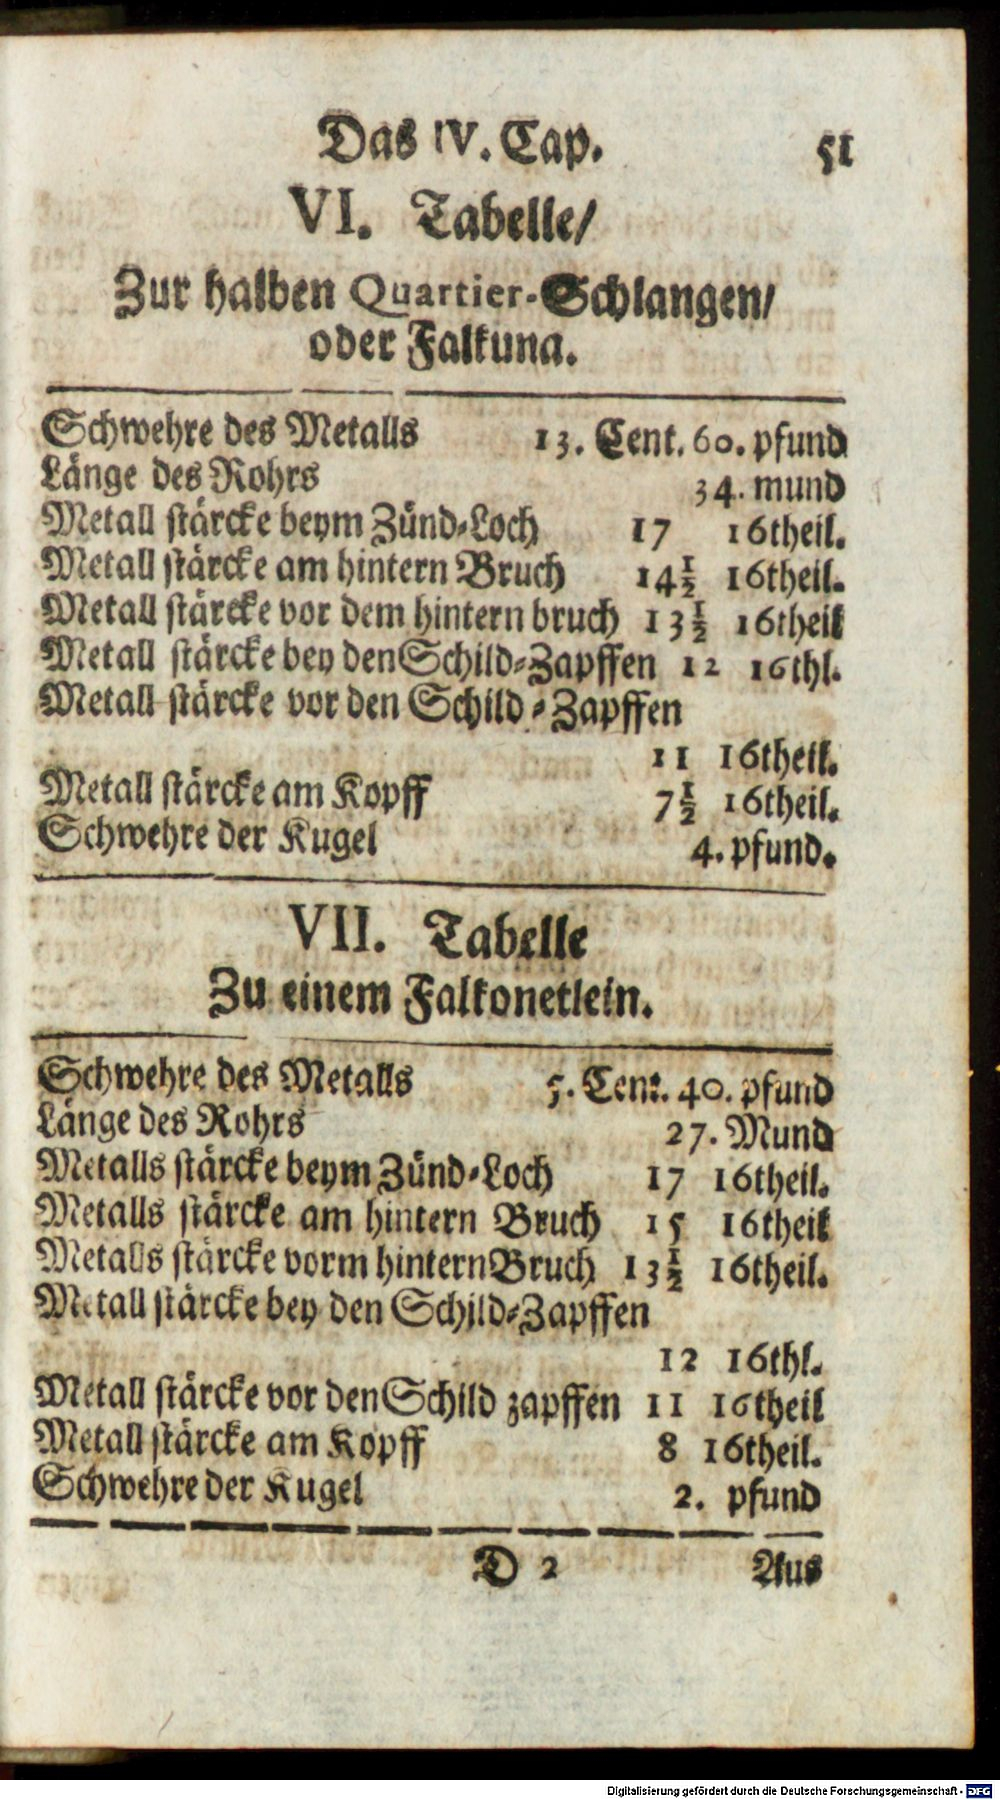 Das IV. Cap. 51
VI. Tabelle/
Zur halben Quartier-Schlangen/
oder Falkuna.
Schwehre des Metalls 13. Cent. 60. pfund
Länge des Rohrs 34. mund
Metall stärcke beym Zünd-Loch 17 16theil.
Metall stärcke am hintern Bruch 14½ 16theil.
Metall stärcke vor dem hintern bruch 13½ 16theil
Metall stärcke bey den Schild-Zapffen 12 16thl.
Metall stärcke vor den Schild-Zapffen
11 16theil.
Metall stärcke am Kopff 7½ 16theil.
Schwehre der Kugel 4. pfund.
VII. Tabelle
Zu einem Falkonetlein.
Schwehre des Metalls 5. Cent. 40. pfund
Länge des Rohrs 27. Mund
Metalls stärcke beym Zünd-Loch 17 16theil.
Metalls stärcke am hintern Bruch 15 16theil
Metalls stärcke vorm hintern Bruch 13½ 16theil.
Metall stärcke bey den Schild-Zapffen
12 16thl.
Metall stärcke vor den Schild zapffen 11 16theil
Metall stärcke am Kopff 8 16theil.
Schwehre der Kugel 2. pfund
D 2 Aus
Digitalisierung gefördert durch die Deutsche Forschungsgemeinschaft - DFG